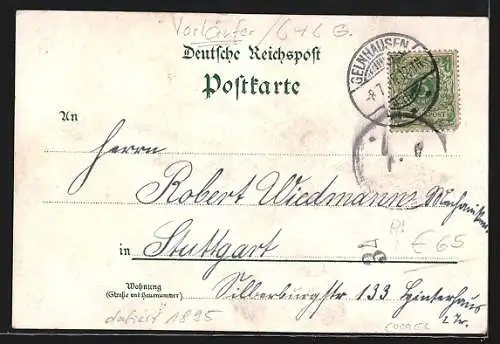 Vorläufer / 646 G.
Deutsche Reichspost
Postkarte
GELNHAUSEN
An
Herrn
Robert Wiedmann, Mechaniker
in Stuttgart
34
€65
Wohnung
(Straße und Hausnummer)
Silberburgstr 133 Hinterhaus
2 Tr.
datiert 1895